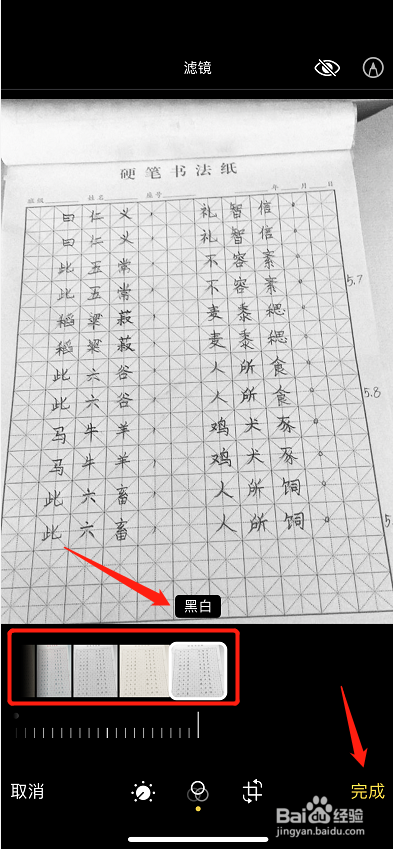 滤镜
硬笔书法纸
班级 姓名 座号 年 月 日
曰仁义，礼智信。
曰仁义，礼智信。
此五常，不容紊。
此五常，不容紊。 5.7
稻粱菽，麦黍稷。
稻粱菽，麦黍稷。
此六谷，人所食。
此六谷，人所食。 5.8
马牛羊，鸡犬豕。
马牛羊，鸡犬豕。
此六畜，人所饲。
此六畜，人所饲。 5.
黑白
取消
完成
Baidu经验
jingyan.baidu.com